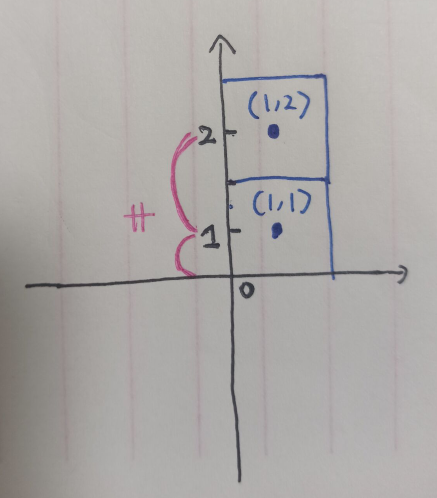 (1,2)
2
(1,1)
1
0